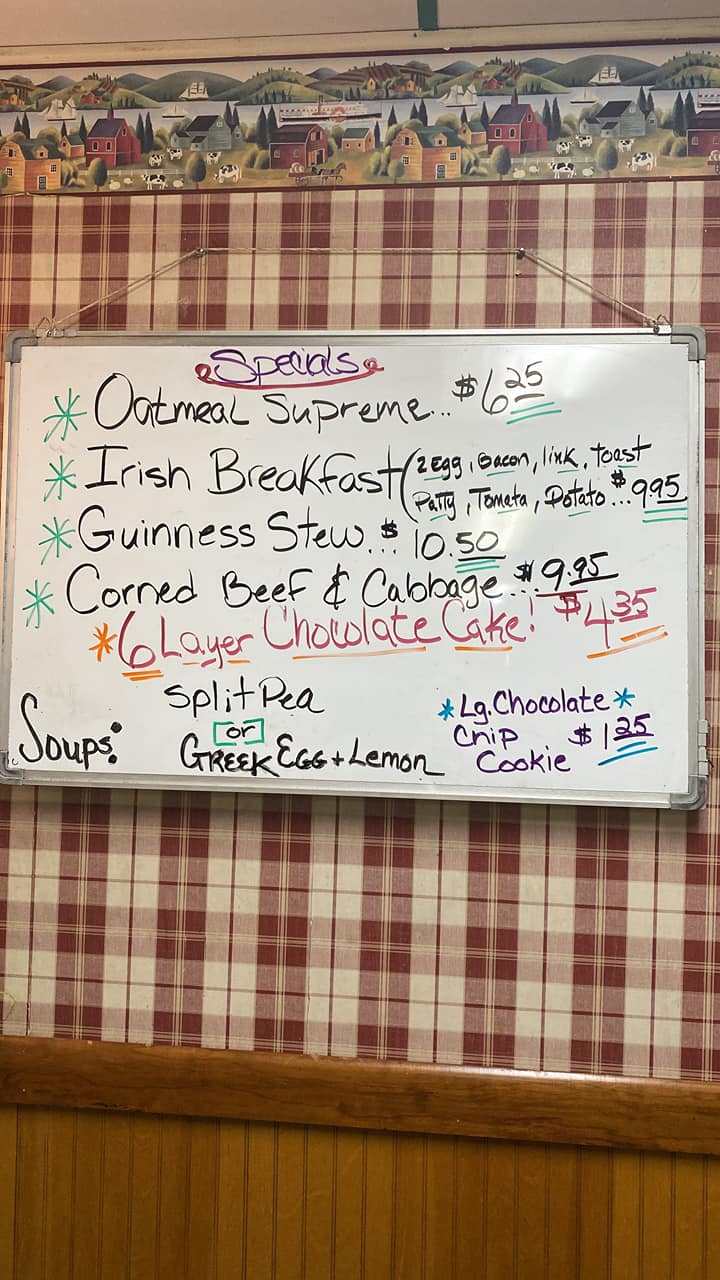 Specials
* Oatmeal Supreme... $6.25
* Irish Breakfast (2 Egg, Bacon, link, toast
Patty, Tomata, Potato...$9.95
* Guinness Stew...$10.50
* Corned Beef & Cabbage...$9.95
*6 Layer Chocolate Cake! $4.35
Soups:
Split Pea
or
Greek Egg + Lemon
*Lg. Chocolate*
Chip $1.25
Cookie